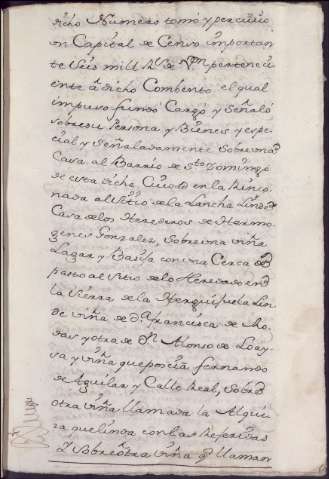 dicho Numero tomó y percivio
un Capital de Censo importan
te seis mill Rs Vn pertenecì
ente â dicho Combento el qual
impuso fundó Cargó y Señaló
sobre su Persona y Bienes y espe
cial y Señaladamente Sobre una
Casa al Barrio de Sto Domingo
de esta dicha Ciudad en la Rinco
nada al Sitio de la Lancha Linde
Casa de los Herederos de Hermo
genes Gonzalez, Sobre una viña
Lagar y Basija con una Cerca de
pasto al Sitio de lo Heredado en
la Sierra de la Lin
de viña de Da francisca de Ro
das y otra de Dn Alonso de Loay
sa y viña que poseia fernando
de Aguilar y Calle Real, Sobre
otra viña llamada la Alqui
ra que linda con las Referidas
Y Sobre otra viña q llaman